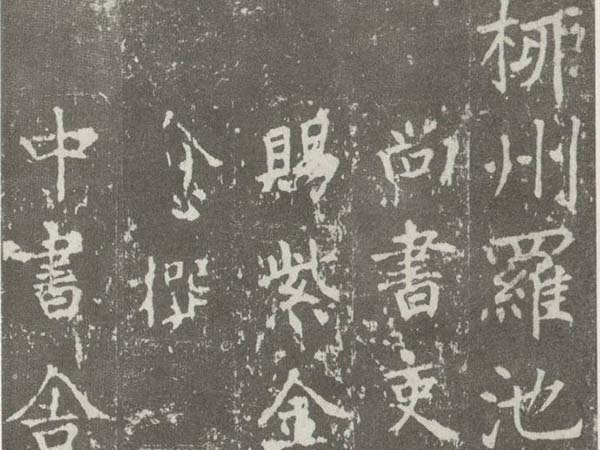 柳州羅池
尚書吏
賜紫金
愈撰
中書舍